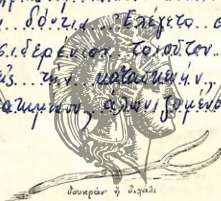 δόντια... Ἐλέγετο
σιδερένιον τοιοῦτον..
τὴν... κατασκευήν..
ἁλωνιζομένο
δουκράν ἢ διχάλι